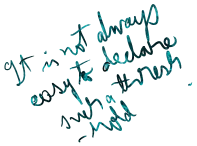 It is not always
easy to declare
such a thresh
-hold